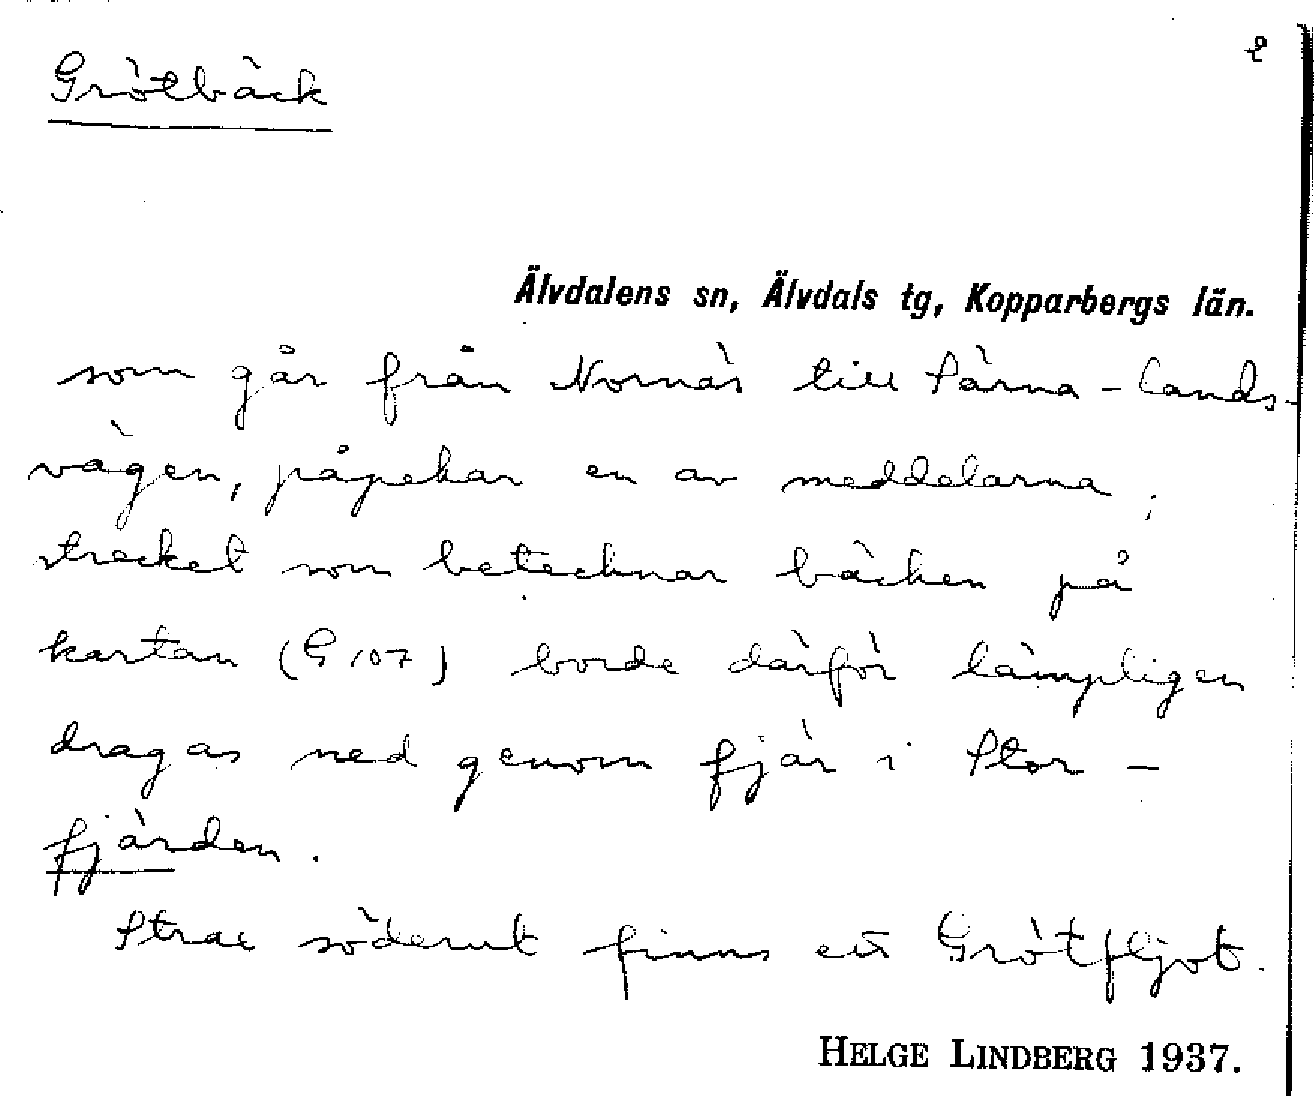 2
Grötbäck
Älvdalens sn, Älvdals tg, Kopparbergs län.
som går från Nornäs till Särna-lands-
vägen, påpekar en av meddelarna;
strecket som betecknar bäcken på
kartan (G 107) borde därför lämpligen
dragas ned genom fjär i Stor-
fjärden.
Strax söderut finns ett Grötfljot.
HELGE LINDBERG 1937.